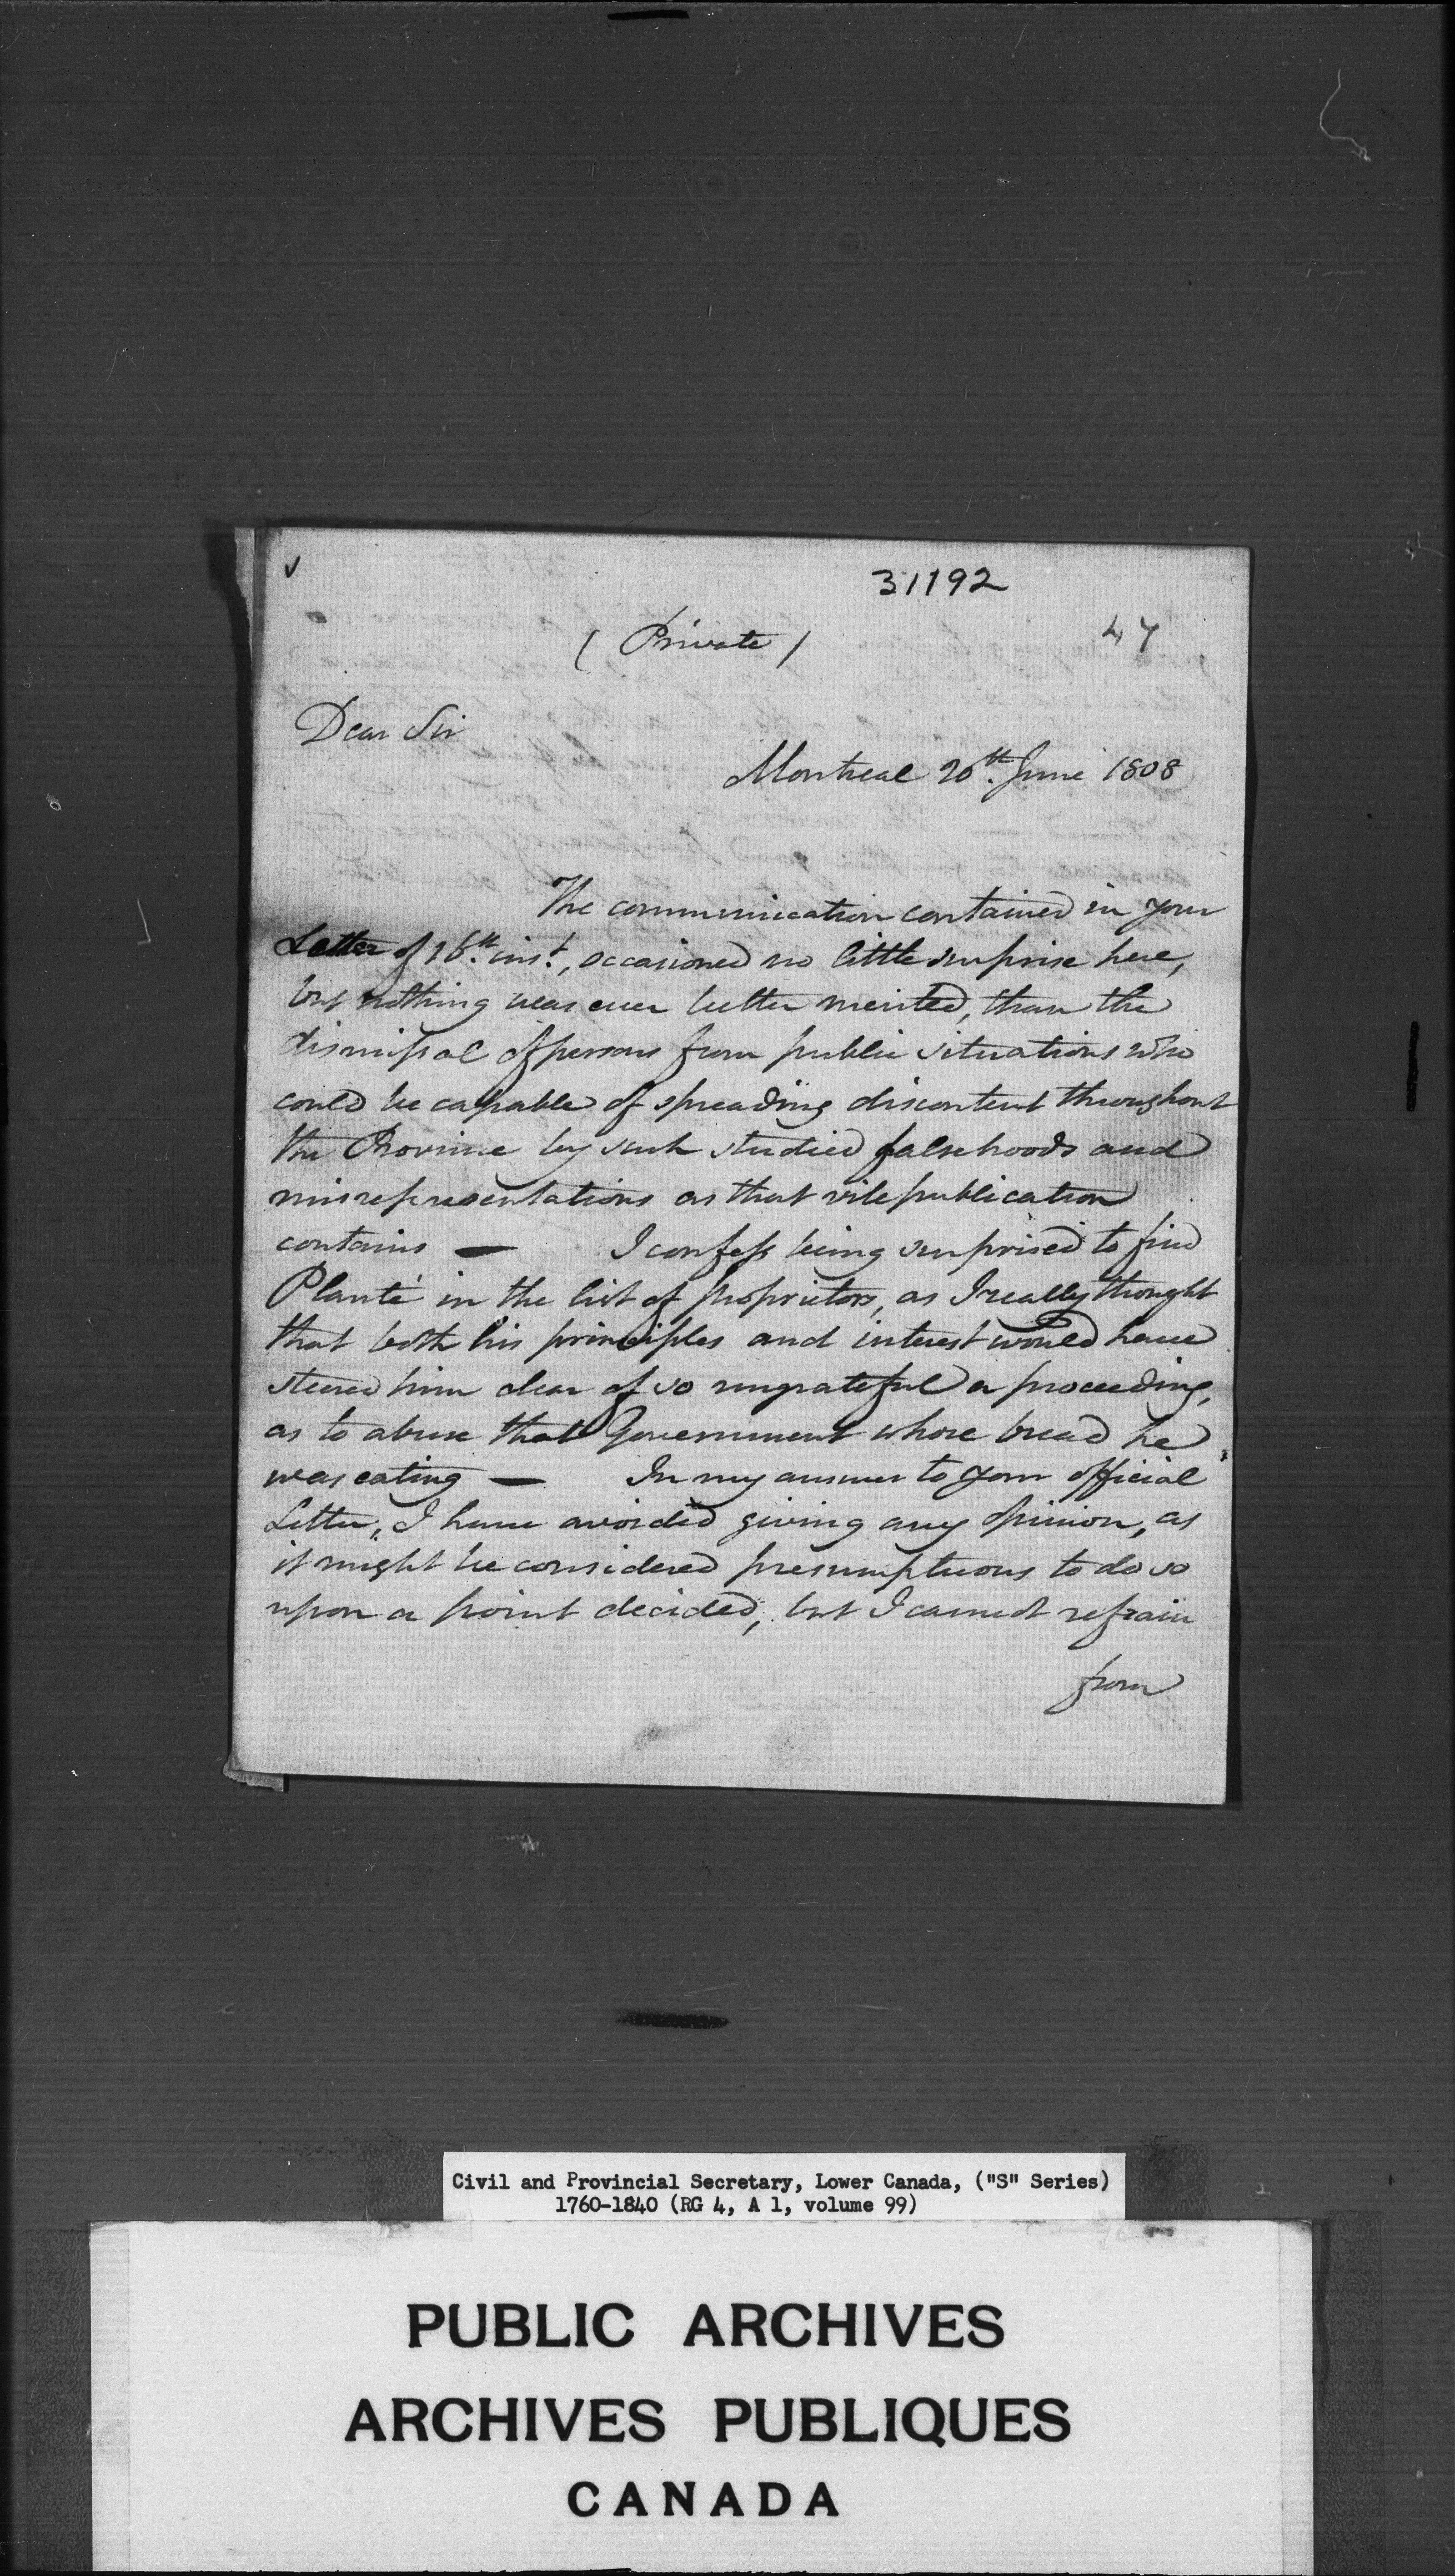 ✓
31192
47
( Private )
Dear Sir
Montreal 20th June 1808
The communication contained in your
Letter of 16th inst, occasioned no little surprise here,
but nothing was ever better merited, than the
dismissal of persons from public situations who
could be capable of spreading discontent throughout
the Province by such studied falsehoods and
misrepresentations as that vile publication
contains — I confess being surprised to find
Planté in the list of proprietors, as I really thought
that both his principles and interest would have
steered him clear of so ungrateful a proceeding,
as to abuse that Government whose bread he
was eating — In my answer to your official
Letter, I have avoided giving any opinion, as
it might be considered presumptuous to do so
upon a point decided, but I cannot refrain
from
Civil and Provincial Secretary, Lower Canada, ("S" Series)
1760-1840 (RG 4, A 1, volume 99)
PUBLIC ARCHIVES
ARCHIVES PUBLIQUES
CANADA